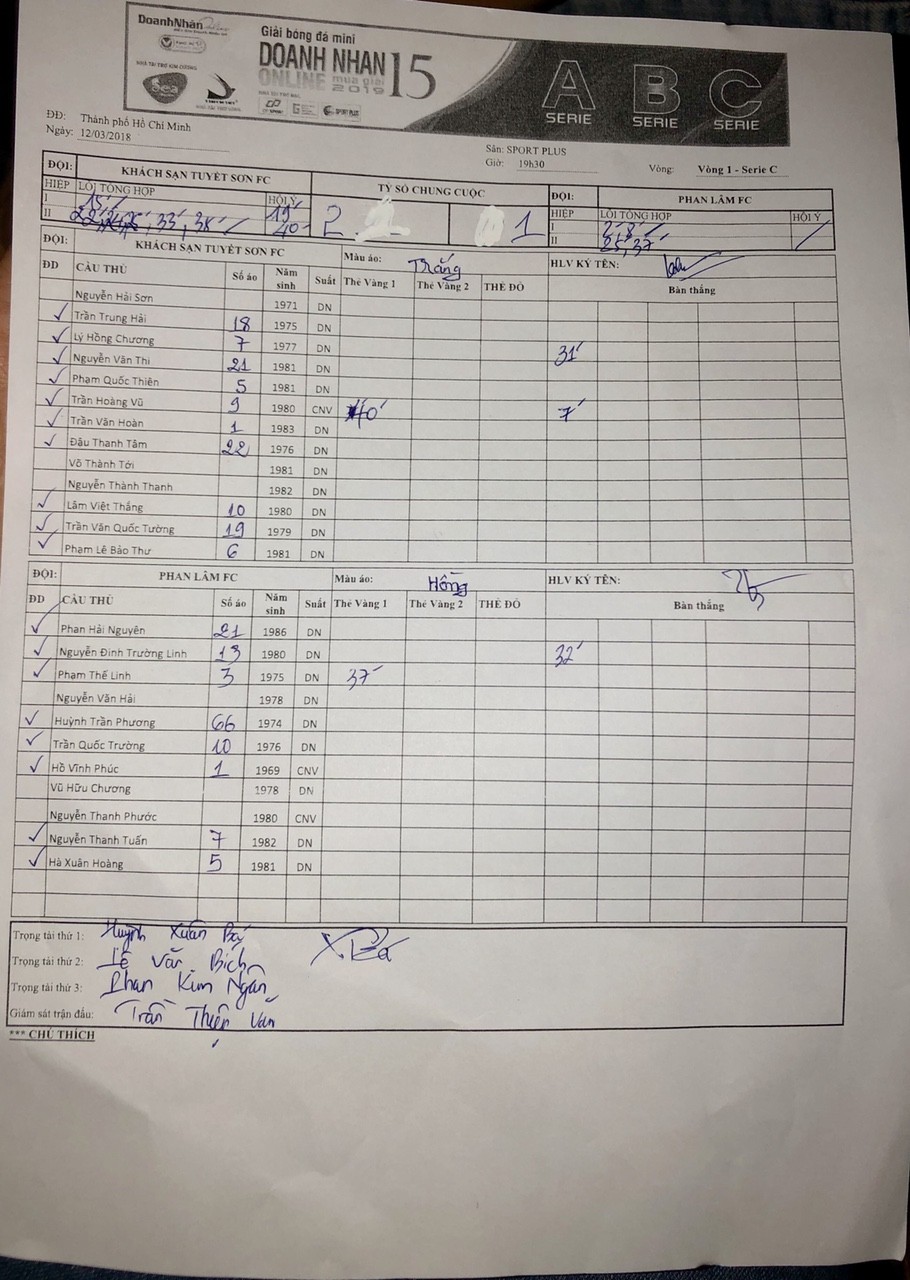 DoanhNhân
Giải bóng đá mini
DOANH NHAN 15
ONLINE mùa giải 2019
NHÀ TÀI TRỢ KIM CƯƠNG
Sea
SPORT PLUS
A B C
SERIE SERIE SERIE
ĐĐ: Thành phố Hồ Chí Minh
Ngày: 12/03/2018
Sân: SPORT PLUS
Giờ: 19h30
Vòng: Vòng 1 - Serie C
ĐỘI: KHÁCH SẠN TUYẾT SƠN FC TỶ SỐ CHUNG CUỘC ĐỘI: PHAN LÂM FC
HIỆP LỖI TỔNG HỢP HỘI Ý HIỆP LỖI TỔNG HỢP HỘI Ý
I 15' 19' 2 1 I 2', 8'
II 33', 38' 40' II 25', 37'
ĐỘI: KHÁCH SẠN TUYẾT SƠN FC Màu áo: Trắng HLV KÝ TÊN:
ĐD CẦU THỦ Số áo Năm sinh Suất Thẻ Vàng 1 Thẻ Vàng 2 THẺ ĐỎ Bàn thắng
Nguyễn Hải Sơn 1971 DN
✓ Trần Trung Hải 18 1975 DN
✓ Lý Hồng Chương 7 1977 DN 31'
✓ Nguyễn Văn Thi 21 1981 DN
✓ Phạm Quốc Thiên 5 1981 DN
✓ Trần Hoàng Vũ 9 1980 CNV 40' 7'
✓ Trần Văn Hoàn 1 1983 DN
✓ Đậu Thanh Tâm 22 1976 DN
Võ Thành Tới 1981 DN
Nguyễn Thành Thanh 1982 DN
✓ Lâm Việt Thắng 10 1980 DN
✓ Trần Văn Quốc Tường 19 1979 DN
✓ Phạm Lê Bảo Thư 6 1981 DN
ĐỘI: PHAN LÂM FC Màu áo: Hồng HLV KÝ TÊN:
ĐD CẦU THỦ Số áo Năm sinh Suất Thẻ Vàng 1 Thẻ Vàng 2 THẺ ĐỎ Bàn thắng
✓ Phan Hải Nguyên 21 1986 DN
✓ Nguyễn Đình Trường Linh 13 1980 DN 32'
✓ Phạm Thế Linh 3 1975 DN 37'
Nguyễn Văn Hải 1978 DN
✓ Huỳnh Trần Phương 66 1974 DN
✓ Trần Quốc Trường 10 1976 DN
✓ Hồ Vĩnh Phúc 1 1969 CNV
Vũ Hữu Chương 1978 DN
Nguyễn Thanh Phước 1980 CNV
✓ Nguyễn Thanh Tuấn 7 1982 DN
✓ Hà Xuân Hoàng 5 1981 DN
Trọng tài thứ 1: Huỳnh Xuân Bá
Trọng tài thứ 2: Lê Văn Bích
Trọng tài thứ 3: Phan Kim Ngân
Giám sát trận đấu: Trần Thiện Văn
*** CHÚ THÍCH